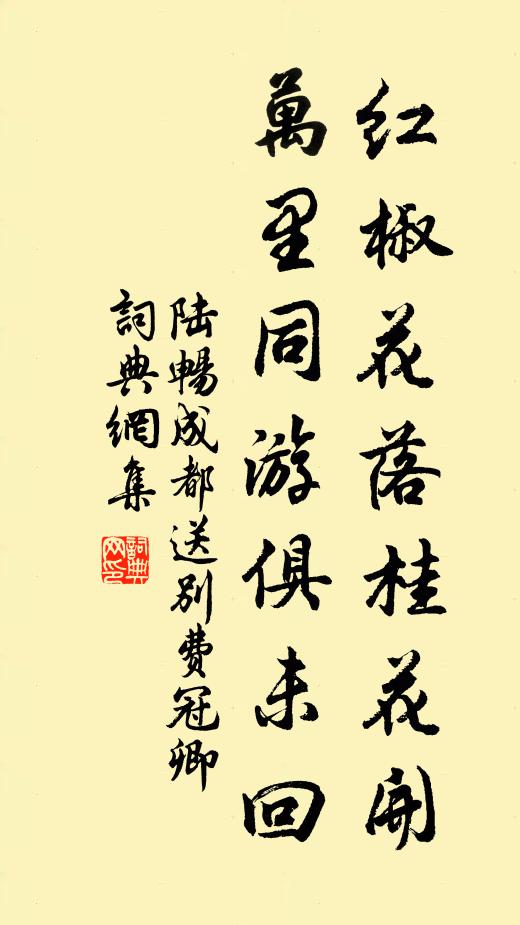 红椒花落桂花開
萬里同游俱未回
陆暢成都送别費冠卿
詞典網集
詞典網印